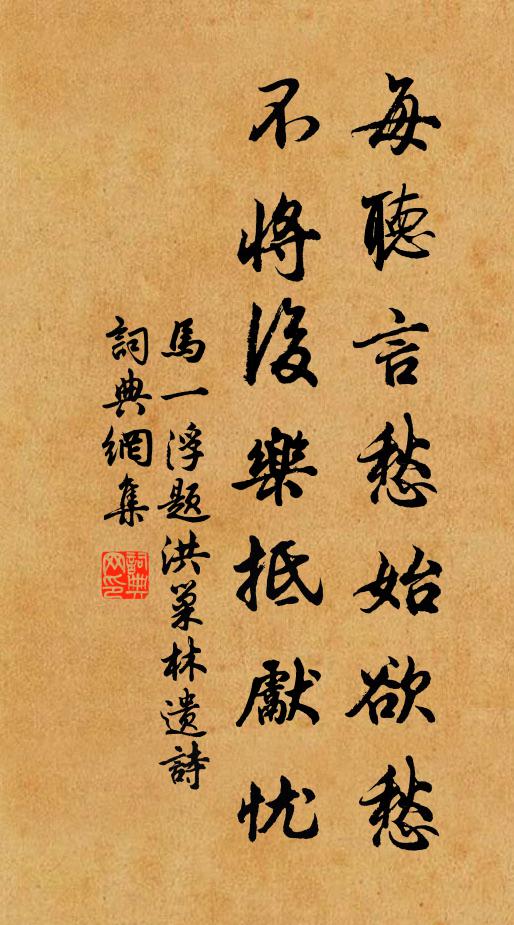 每聽言愁始欲愁
不將後樂抵獻忧
馬一浮題洪巢林遺詩
詞典網集
詞典网印